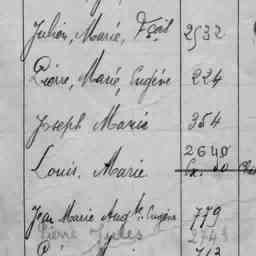 Julien, Marie, Fçois 2532
Pierre, Marie, Eugène 224
Joseph Marie 354
2640
Louis, Marie
Jean Marie Aug te Eugène 779
Pierre Jules 2743
713